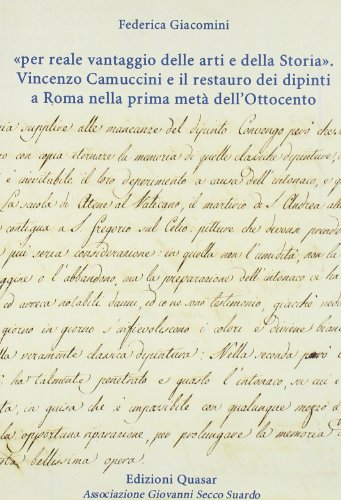 Federica Giacomini
«per reale vantaggio delle arti e della Storia».
Vincenzo Camuccini e il restauro dei dipinti
a Roma nella prima metà dell'Ottocento
supplire alle mancanze del dipinto Convengo però che
con copia eternare la memoria di quelle classiche dipinture;
è inevitabile il loro deperimento a causa dell'intonaco, e
la scuola di Atene al Vaticano, il martirio di S. Andrea
contigua a S. Gregorio sul Celio: pitture che devon
più seria considerazione: in quella non l'umidità, non la
o l'abbandono, ma la preparazione dell'intonaco vi ha
ed arreca notabili danni, ed io ne son testimonio, giacchè
giorno in giorno s'infievoliscono i colori e diviene
veramente classica dipintura: Nella seconda però
ha talmente penetrato e guasto l'intonaco, su cui è
in guisa che è impossibile con qualunque mezzo
la opportuna riparazione, per prolungare la memoria
bellissima opera.
Edizioni Quasar
Associazione Giovanni Secco Suardo